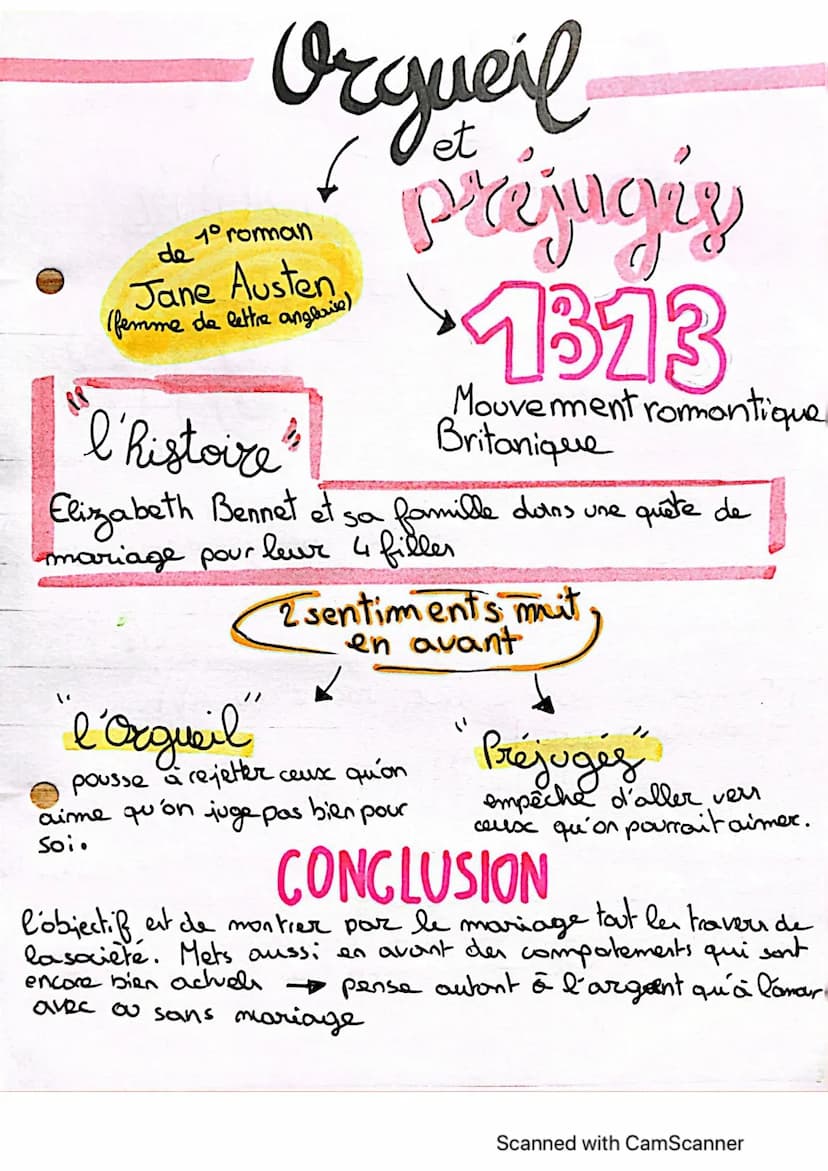 Orgueil
et
préjugés
de 1° roman
Jane Austen
(femme de lettre anglaise)
1313
Mouvement romantique
Britanique
"l'histoire"
Elizabeth Bennet et sa famille dans une quête de
mariage pour leur 4 filles
2 sentiments muit
en avant
"l'Orgueil"
pousse à rejetter ceux qu'on
aime qu'on juge pas bien pour
soi.
"Préjugés"
empêche d'aller vers
ceux qu'on pourrait aimer.
CONCLUSION
l'objectif est de montrer par le mariage tout les travers de
la société. Mets aussi en avant des compotements qui sont
encore bien actuels → pense autant à l'argent qu'à l'amour
avec ou sans mariage
Scanned with CamScanner